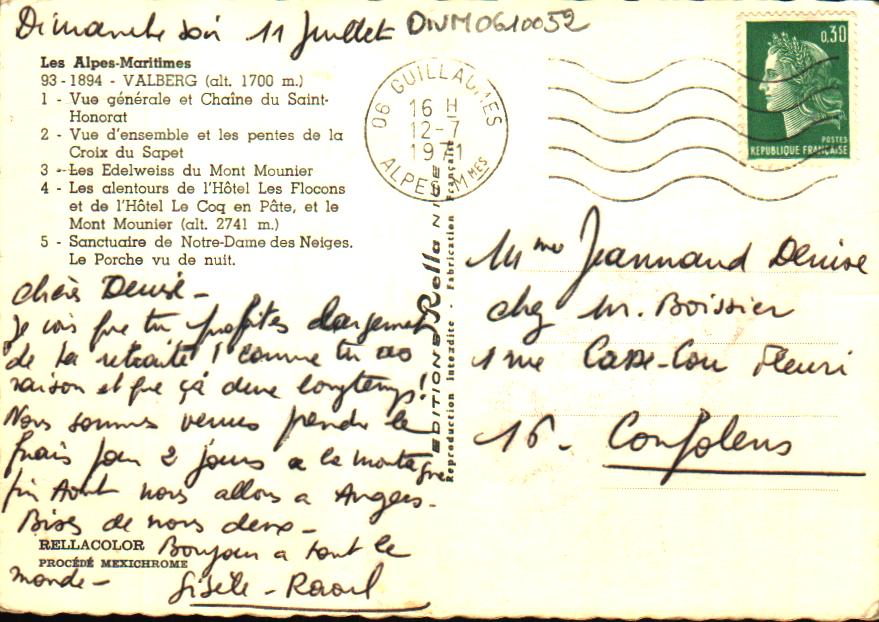 Dimanche soir 11 Juillet DIVM0610052
Les Alpes-Maritimes
93-1894 - VALBERG (alt. 1700 m.)
1 - Vue générale et Chaîne du Saint-
Honorat
2 - Vue d'ensemble et les pentes de la
Croix du Sapet
3 - Les Edelweiss du Mont Mounier
4 - Les alentours de l'Hôtel Les Flocons
et de l'Hôtel Le Coq en Pâte, et le
Mont Mounier (alt. 2741 m.)
5 - Sanctuaire de Notre-Dame des Neiges.
Le Porche vu de nuit.
Chère Denise -
Je vois que tu profites largement
de ta retraite ! comme tu as
raison et que çà dure longtemps !
Nous sommes venus prendre le
frais pour 2 jours a la montagne
fin Août nous allons a Angers.
Bises de nous deux -
Bonjour a tout le
monde - Gisèle - Raoul
RELLACOLOR
PROCÉDÉ MEXICHROME
EDITIONS Rella NICE
Reproduction Interdite - Fabrication Française
06 GUILLAUMES
16 H
12-7
1971
ALPES-MMES
0,30
POSTES
REPUBLIQUE FRANÇAISE
Mme Jeannand Denise
chez M. Boissier
1 rue Casse-Cou Fleuri
16 - Confolens